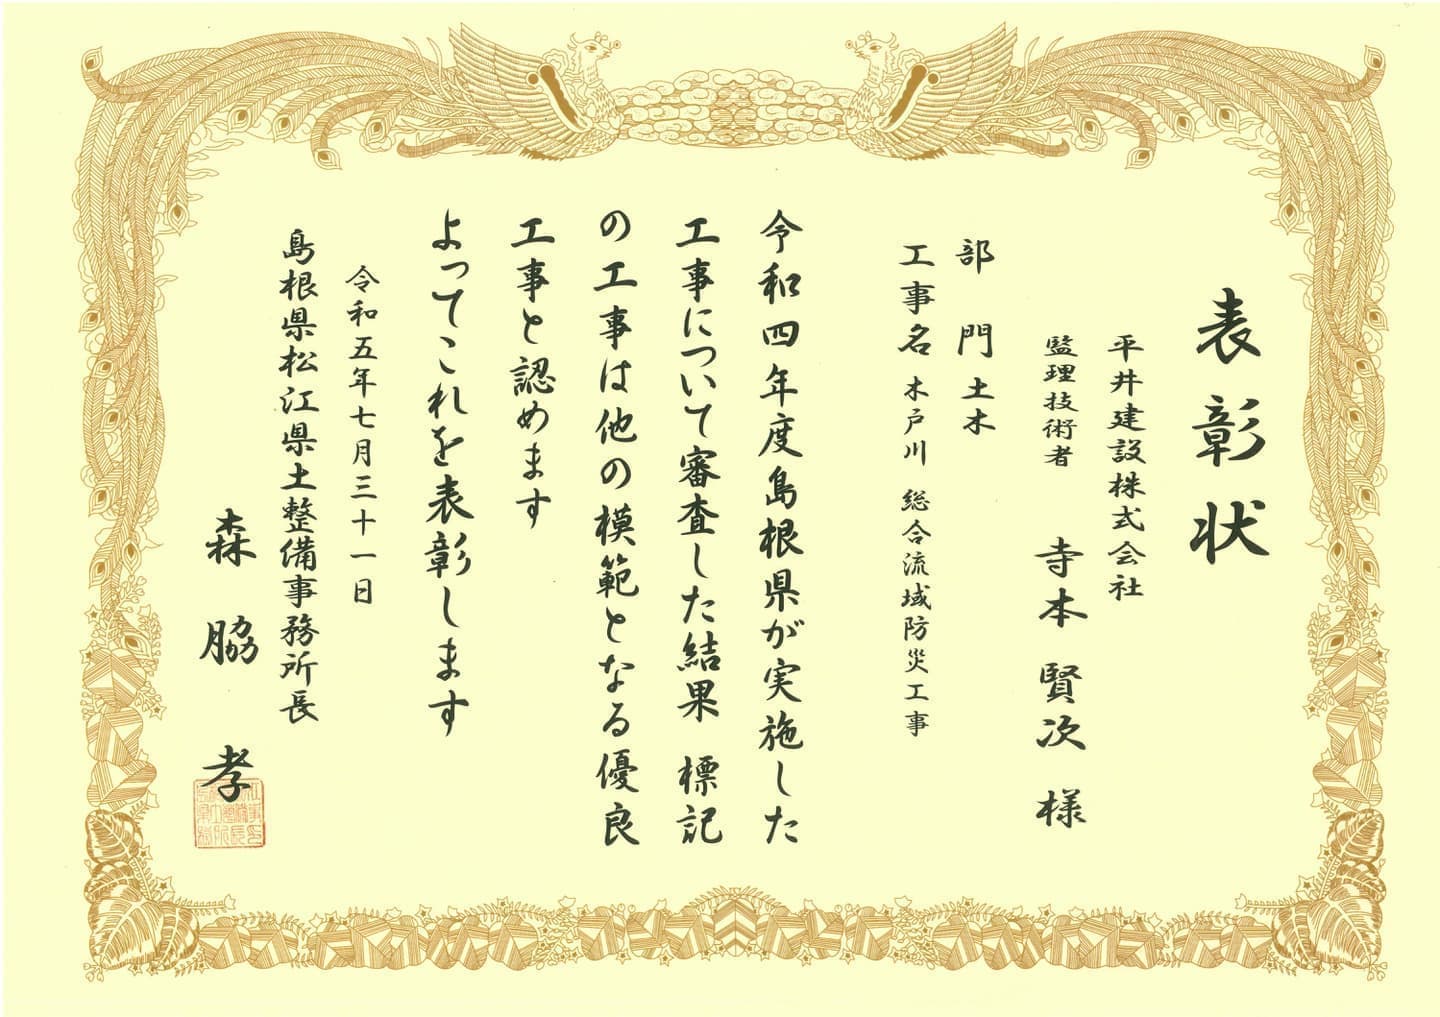 表彰状
平井建設株式会社
監理技術者　寺本　賢次　様
部　門　土木
工事名　木戸川　総合流域防災工事
令和四年度島根県が実施した
工事について審査した結果　標記
の工事は他の模範となる優良
工事と認めます
よってこれを表彰します
令和五年七月三十一日
島根県松江県土整備事務所長
森　脇　孝